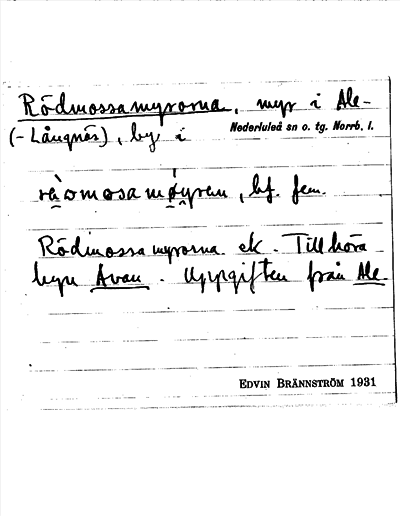 Rödmossamyrorna, myr i Ale-
(-Långnäs), by i Nederluleå sn o. tg. Norrb. l.
bf. fem.
Rödmossamyrorna ek. Tillhöra
byn Avan. Uppgiften från Ale
EDVIN BRÄNNSTRÖM 1931